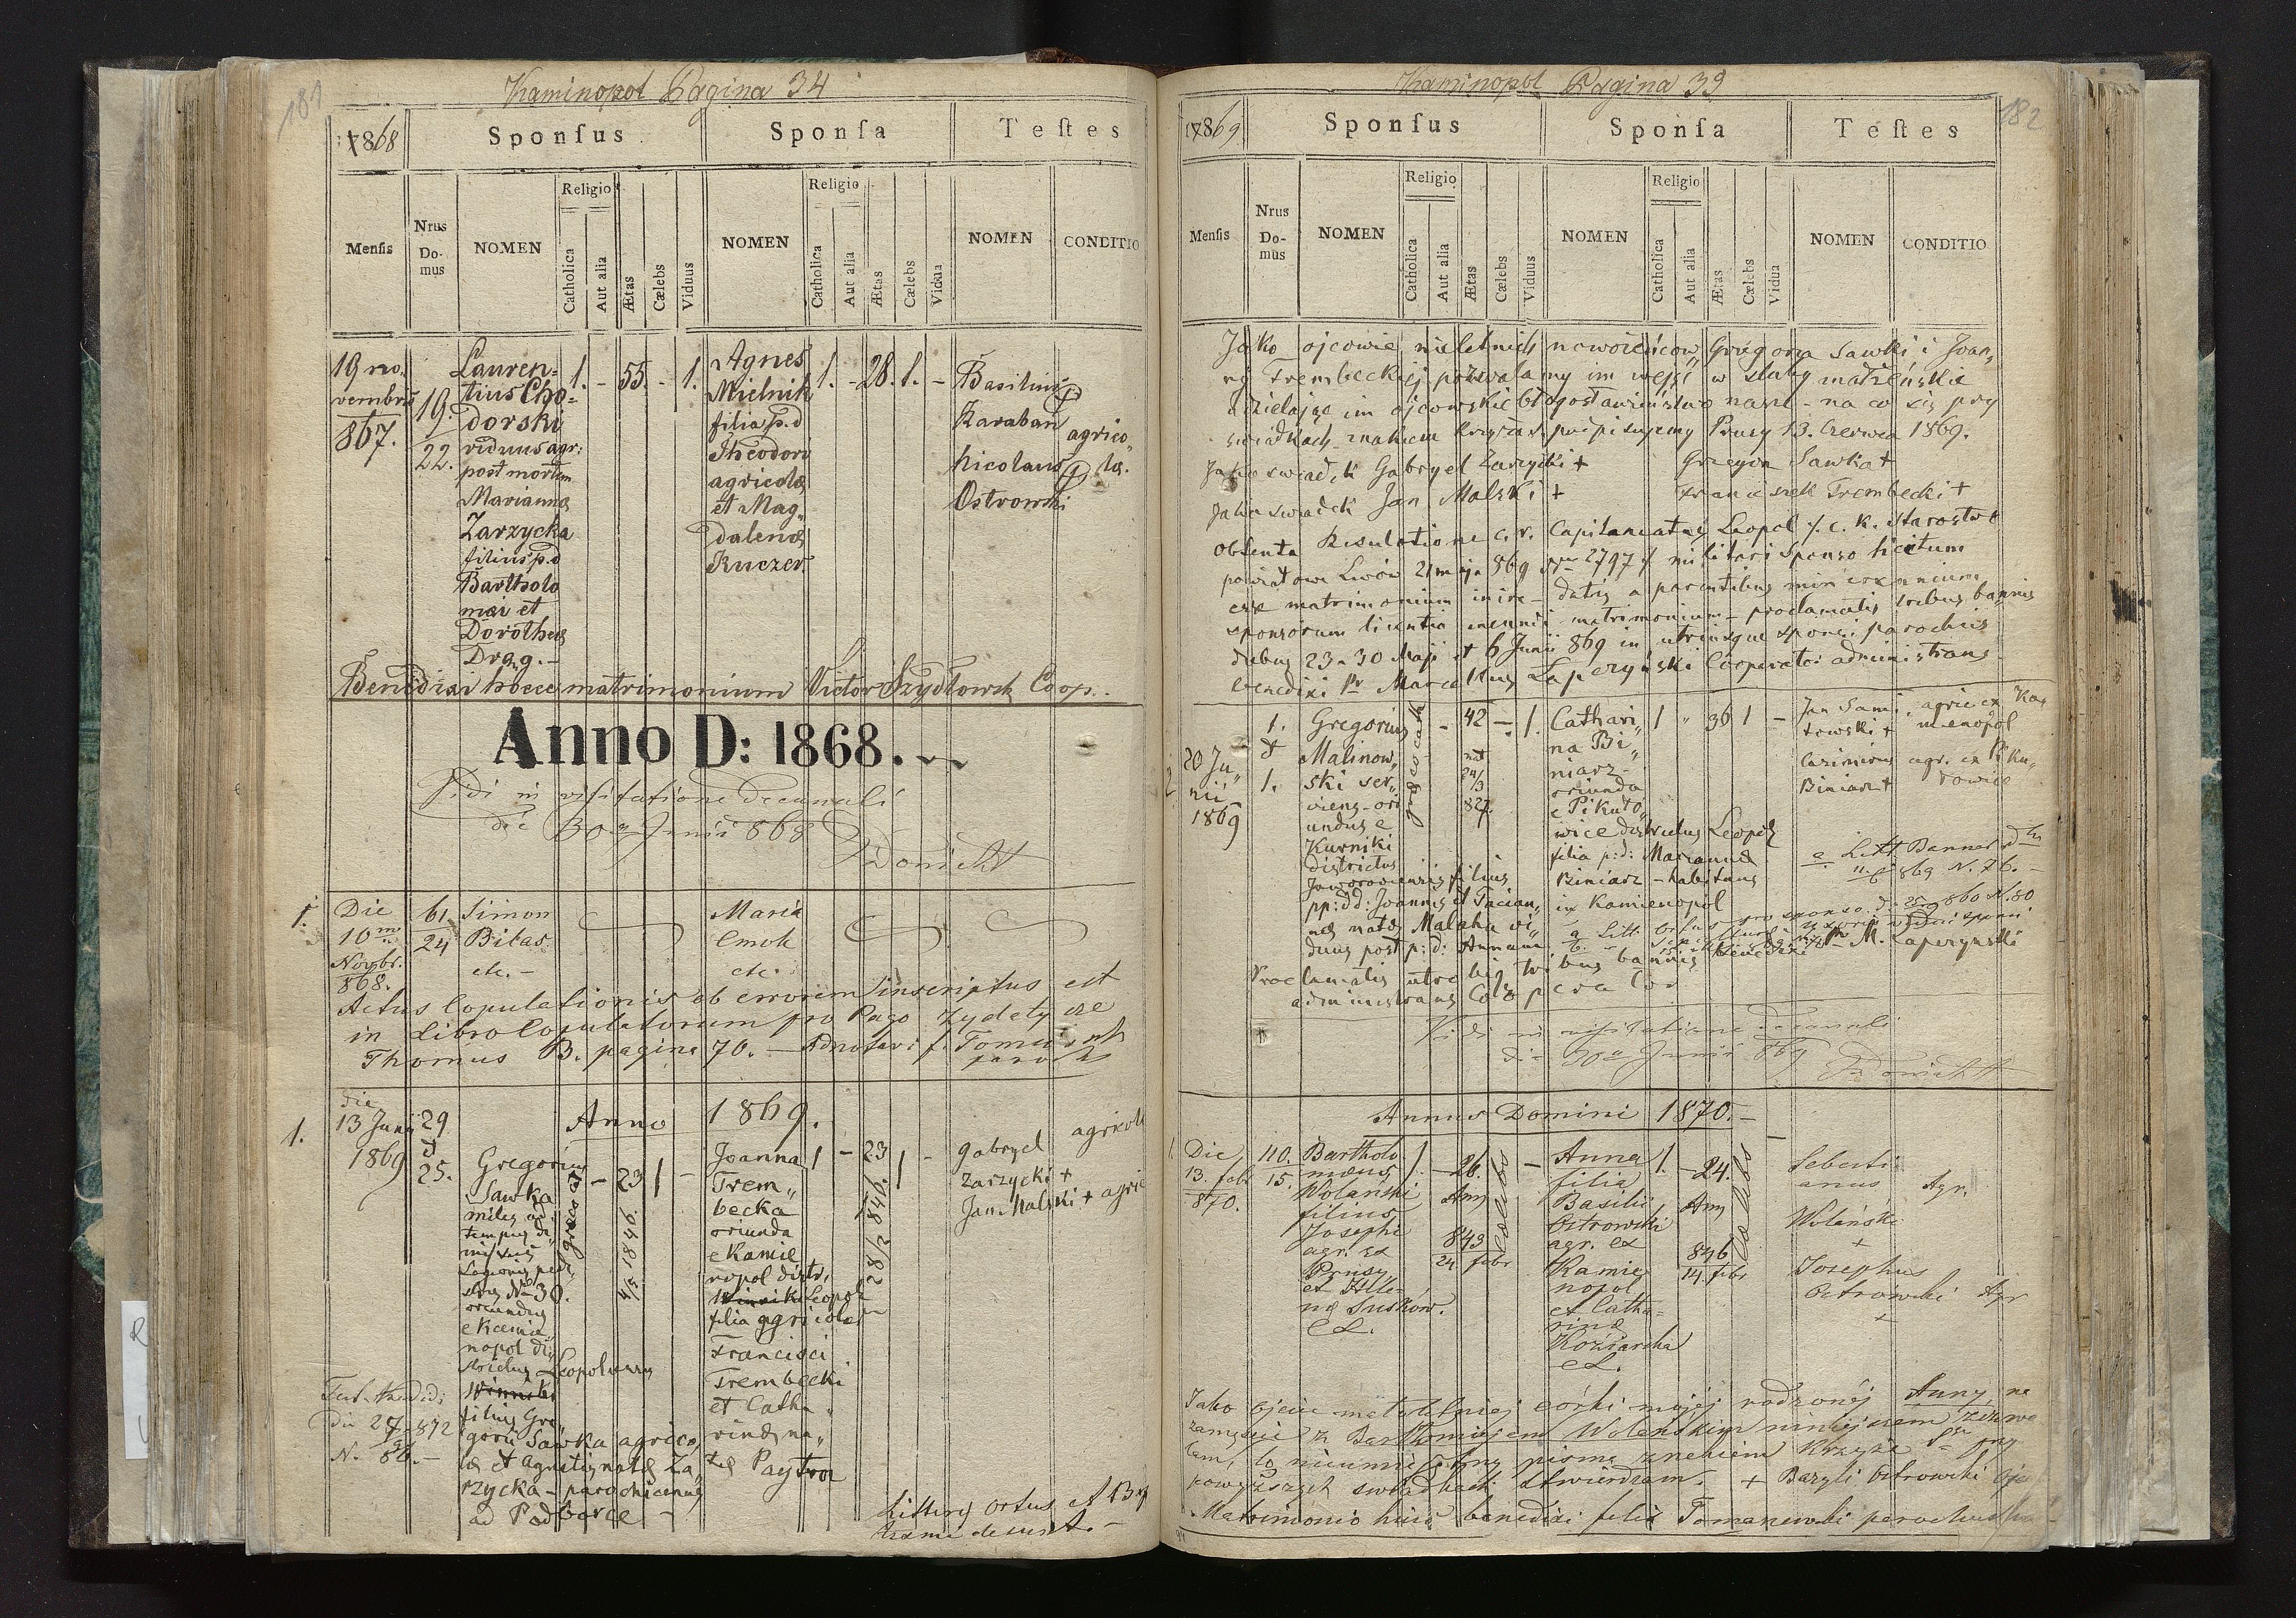 181
Kaminopol Pagina 34
1868
Sponſus
Sponſa
Teſtes
Menſis
Nrus Domus
NOMEN
Religio
Catholica
Aut alia
Ætas
Cælebs
Viduus
NOMEN
Religio
Catholica
Aut alia
Ætas
Cælebs
Vidua
NOMEN
CONDITIO
19 no„
vembris
867.
19.
22.
Lauren=
tius Cho=
dorski
viduus agr:
post mortem
Mariannæ
Zarzycka
filius p.d
Bartholo
mæi et
Dorotheæ
Drąg. –
1. - 55. - 1.
Agnes
Mielnik
filia p.d
Theodori
agricolæ
et Mag„
dalenæ
Kuczer.
1. - 28. 1. -
Basilius
Karaban
Nicolaus
Ostrowski
agrico„
læ.
Benedixi hocce matrimonium Victor Szydłowsk Coop.
Anno D: 1868.
Vidi in visitatione decanali
die 30 Junii 868
1.
Die
10 m
Novbr.
868.
61.
24
Simon
Biłas
etc. –
Maria
Cmok
etc.
Actus Copulationis ob errorem inscriptus est
in Libro Copulatorum pro Pago Zydatycze
Thomus B. pagina 70. – Adnotavi f. Tomanek
paroch
Anno 1869.
1.
die
13 Junii
1869
29
et
25.
Gregorius
Sawka
miles ad
tempus di„
missus
Legionis ped„
stris No 30.
oriundus
e Kamie„
nopol di„
strictus Leopoliensis
Winniki
filius Gre„
gorii Sawka agrico„
læ et Agnetis natæ Za„
rzycka – parochianus
ad Podborce –
græco cat
- 23 1 -
4/5 1846.
Joanna
Trem„
becka
oriunda
e Kamie
nopol distr,
Winniki Leopol
filia agricolæ
Francisci
Trembecki
et Catha„
rinæ na„
tæ Paytra
1 - 23 1 -
28/2 846.
Gabryel
Zarzycki +
Jan Malski + agric
agricola
Test. extradidi
die 27 872
N. 86. –
Litteris ortus et
182
Kaminopol Pagina 39
1869
Sponſus
Sponſa
Teſtes
Menſis
Nrus Domus
NOMEN
Religio
Catholica
Aut alia
Ætas
Cælebs
Viduus
NOMEN
Religio
Catholica
Aut alia
Ætas
Cælebs
Vidua
NOMEN
CONDITIO
Jako ojcowie nieletnich nowożeńców Grzegorza Sawki i Joan„
ny Trembeckiej pozwalamy im wejść w śluby małżeńskie
udzielając im ojcowskie błogosławieństwo nasze – na co się przy
świadkach znakiem krzyża podpisujemy Prusy 13. Czerwca 1869.
Jako świadek Gabryel Zarzycki + Grzegorz Sawka +
Jako świadek Jan Malski + Franciszek Trembecki +
Obtenta Resolutione c. r. Capitaneatus Leopol /. c. k. Starostwo
powiatowe Lwów 21 maja 869 Nro 2797 ./ militari sponso licitum
esse matrimonium inire – datis a parentibus minorennium
sponsorum licentia ineundi matrimonium – proclamatis tribus bannis
diebus 23 – 30 Maji et 6 Junii 869 in utriusque sponsi parochiis
benedixi Pr Marcellus Łapczyński Cooperator administrans
2
20 Ju„
nii
1869
1.
et
1.
Gregorius
Malinow„
ski ser„
viens – ori
undus e
Kurniki
districtus
Jaworoviensis filius
pp: dd: Joannis et Tacian„
næ natæ Malaha vi„
duus post p: d: Annam
græco cath
- 42 - 1.
nat
24/3
827.
Cathari„
na Bi„
niarz –
oriunda
e Pikuło
wice districtus Leopol
filia p: d: Mariannæ
Biniarz – habitans
in Kamienopol
1 „ 36 1 -
Jan Sami„
towski +
Casimirus
Biniarz +
agric ex Ka„
mienopol
agr. ex Piku„
łowice
a. Litt Bannor d
869 N. 76. –
Proclamatis utrobiq tribus bannis benedixi M. Łapczyński
administrans Cooperator
Vidi in visitatione decanali
die 30 Junii 869
Annus Domini 1870. –
1.
Die
13. febr
870.
110.
15.
Bartholo
mæus
Wolański
filius
Josephi
agr. ex
Prusy
et Hele-
næ Suskow.
ex.
1. - 26. -
Ann
843
24 febr
cœlebs
Anna
filia
Basilii
Ostrowski
agr. ex
Kamie
nopol
et Catha-
rinæ
Koziarska
ex.
1. - 24. -
Ann
846
14 febr
cœlebs
Sebasti
anus
Wolański
+
Josephus
Ostrowski
+
Agr.
Agr
Jako ojciec małoletniej córki mojéj rodzonéj Anny na
zamęźcie z Bartłomiejem Wolańskim niniejszem zezwa
lam, to nieumiejętny pisma znakiem krzyża przy
powyższych świadkach stwierdzam. + Bazyli Ostrowski ojc
Matrimonio huic benedixi Felix Tomanewski parochus